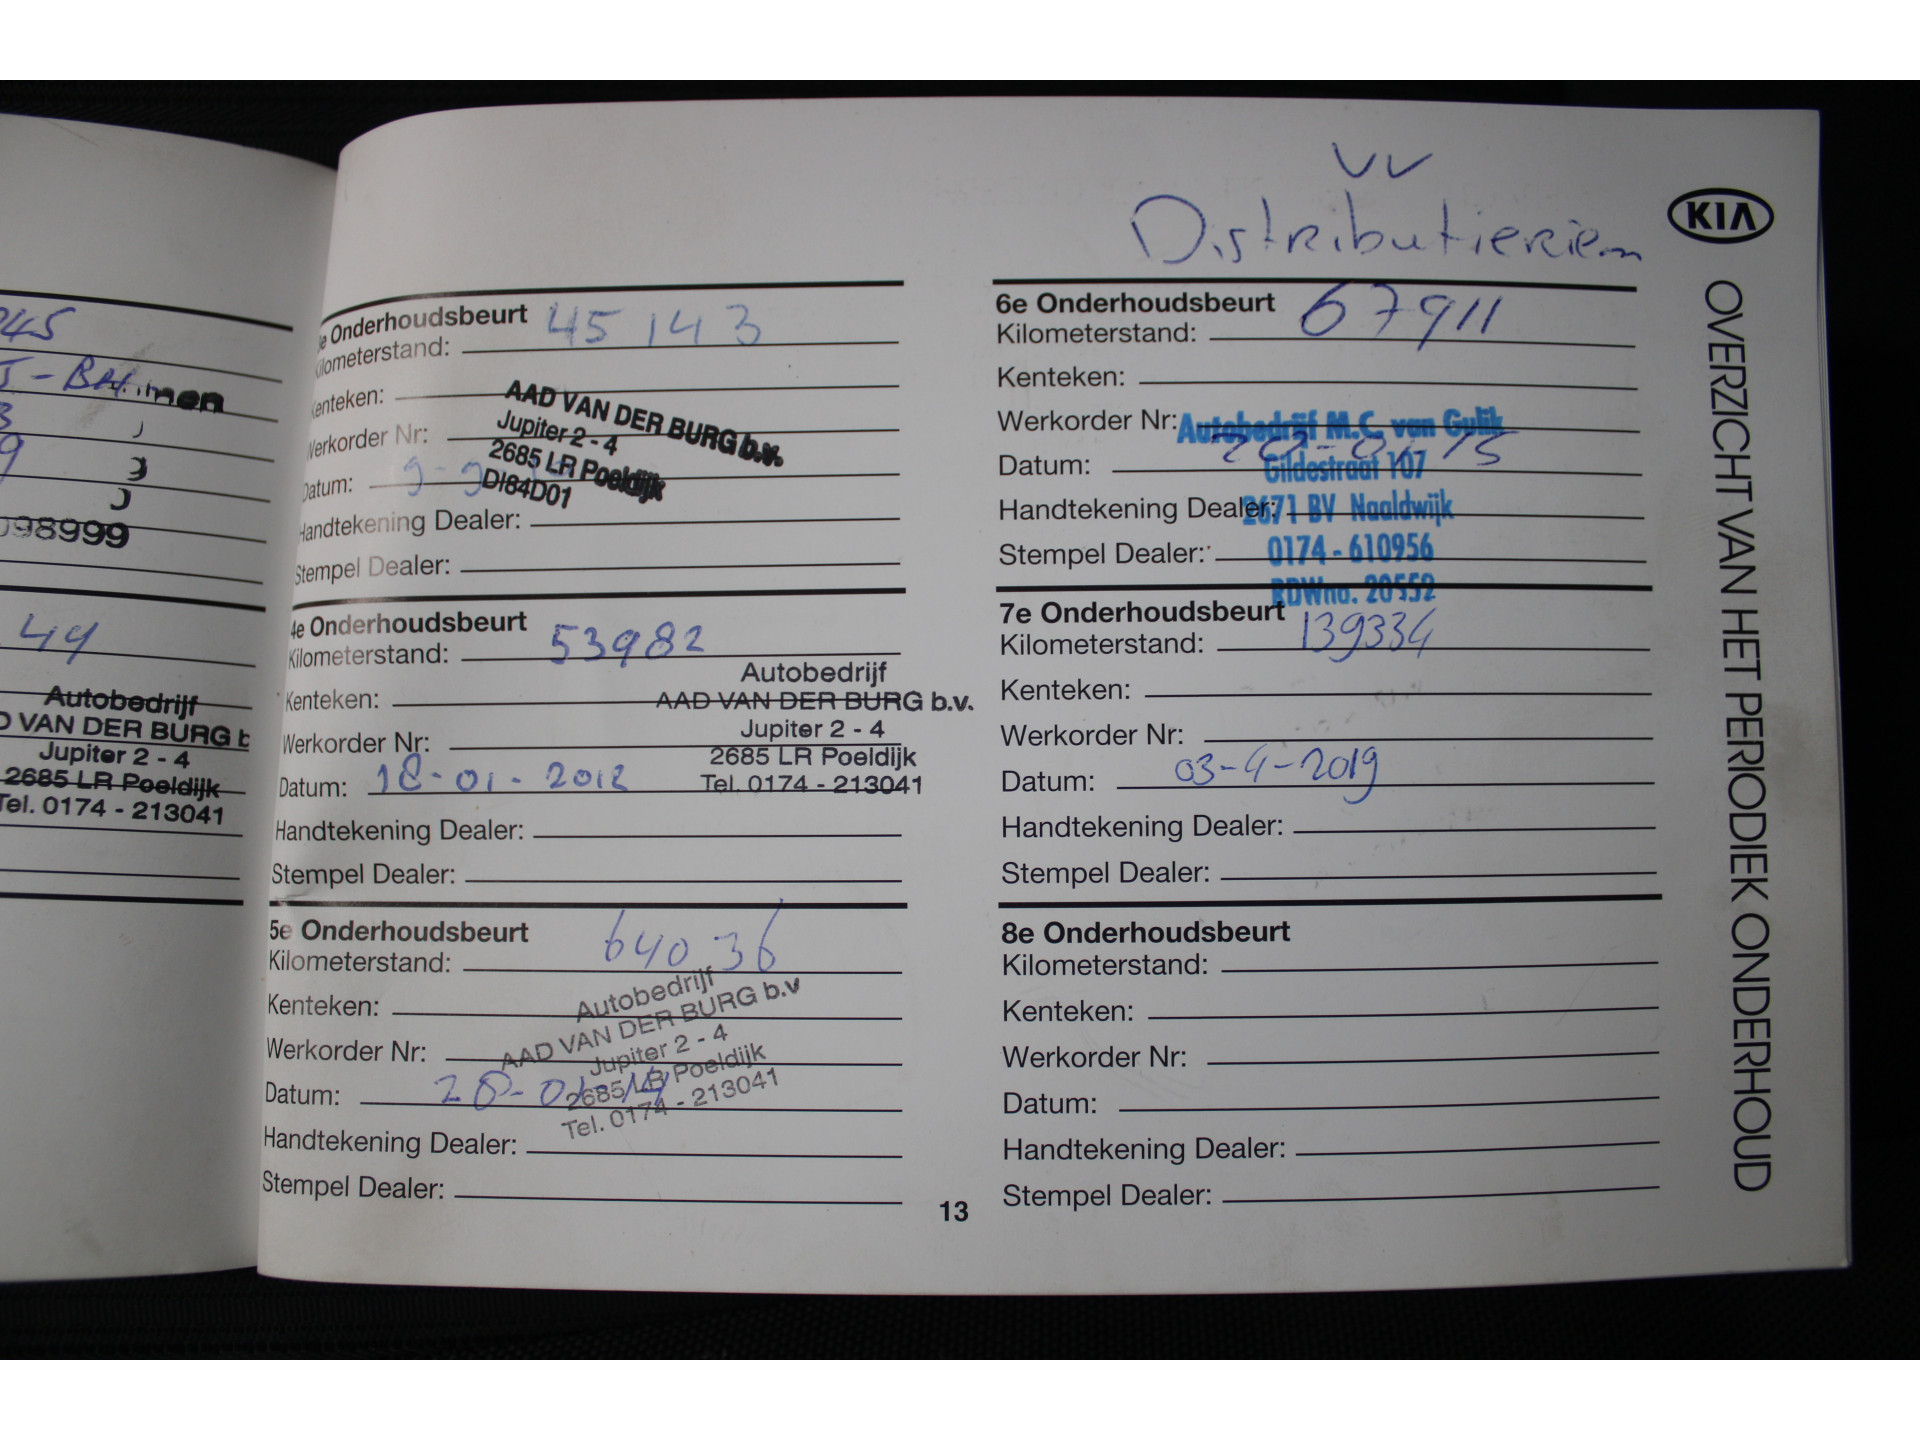 045
Bommen
3
9
098999
44
Autobedrijf
VAN DER BURG b
Jupiter 2 - 4
2685 LR Poeldijk
Tel. 0174 - 213041
e Onderhoudsbeurt 45 143
Kilometerstand:
Kenteken:
AAD VAN DER BURG b.v.
Werkorder Nr:
Jupiter 2 - 4
2685 LR Poeldijk
Datum: 9-9
DI84D01
Handtekening Dealer:
Stempel Dealer:
4e Onderhoudsbeurt
Kilometerstand: 53982
Autobedrijf
Kenteken:
AAD VAN DER BURG b.v.
Jupiter 2 - 4
Werkorder Nr:
2685 LR Poeldijk
Datum: 18-01-2012
Tel. 0174 - 213041
Handtekening Dealer:
Stempel Dealer:
5e Onderhoudsbeurt
Kilometerstand: 64036
Autobedrijf
Kenteken:
AAD VAN DER BURG b.v
Werkorder Nr:
Jupiter 2 - 4
2685 LR Poeldijk
Datum: 28-01-14
Tel. 0174 - 213041
Handtekening Dealer:
Stempel Dealer:
13
VV
Distributieriem
6e Onderhoudsbeurt
Kilometerstand: 67911
Kenteken:
Werkorder Nr:
Autobedrijf M.C. van Gulik
Datum:
Gildestraat 107
Handtekening Dealer:
2671 BV Naaldwijk
Stempel Dealer:
0174 - 610956
RDWno. 20552
7e Onderhoudsbeurt
Kilometerstand: 139334
Kenteken:
Werkorder Nr:
Datum: 03-4-2019
Handtekening Dealer:
Stempel Dealer:
8e Onderhoudsbeurt
Kilometerstand:
Kenteken:
Werkorder Nr:
Datum:
Handtekening Dealer:
Stempel Dealer:
KIA
OVERZICHT VAN HET PERIODIEK ONDERHOUD